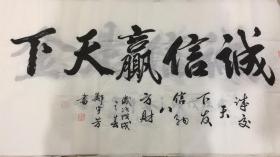 诚信赢天下
诚交
天
下友
信纳
八
方财
岁次戊戌
之春
郑宇芳
书